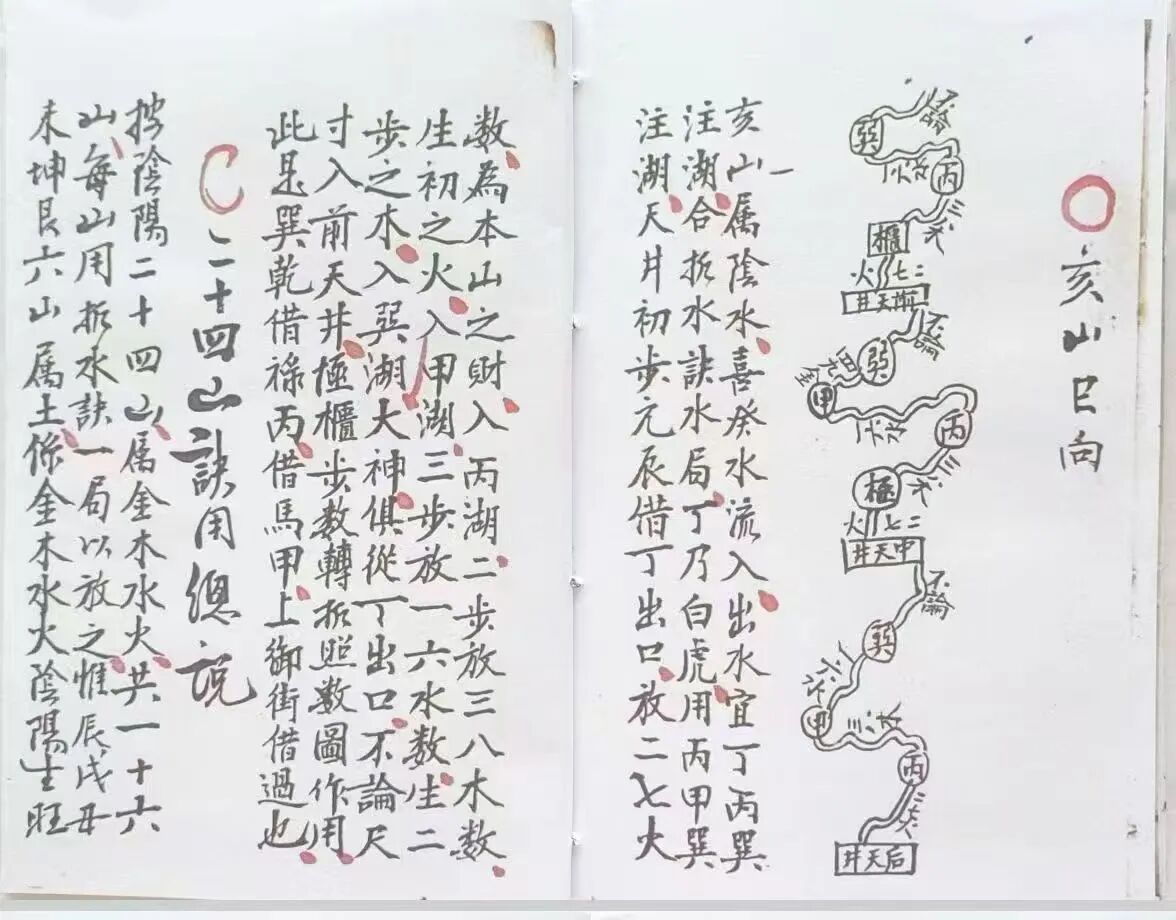 亥山巳向
不論
巽
丙
櫃
二七火
前天井
不論
巽
甲
丙
極
二七火
中天井
不論
巽
甲
丙
后天井
亥山属陰水喜癸水流入出水宜丁丙巽
注湖合折水訣水局丁乃白虎用丙甲巽
注湖天井初步元辰借丁出口放二七火
数為本山之財入丙湖二步放三八木数
生初之火入甲湖三步放一六水数生二
步之木入巽湖大神俱從丁出口不論尺
寸入前天井極櫃步数轉折照数圖作用
此是巽乾借祿丙借馬甲上御街借過也
二十四山訣用總説
按陰陽二十四山属金木水火共一十六
山每山用折水訣一局以放之惟辰戌丑
未坤艮六山属土係金木水火陰陽生旺